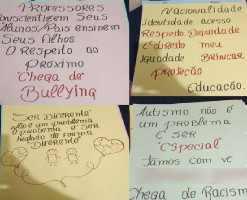 Professores
conscientizem Seus
Alunos/Pais ensinem
Seus Filhos
O Respeito ao
Próximo
"Chega de
Bullying
Nacionalidade
Identidade acesso
Respeito Dignidade
é direito meu
Igualdade Brincar
Proteção
Educação.
"Ser Diferente
não é um problema
o problema é ser
tratado de forma
Diferente"
Autismo não é
um problema
é ser
"Especial
Tamos com vc
Chega de Racism